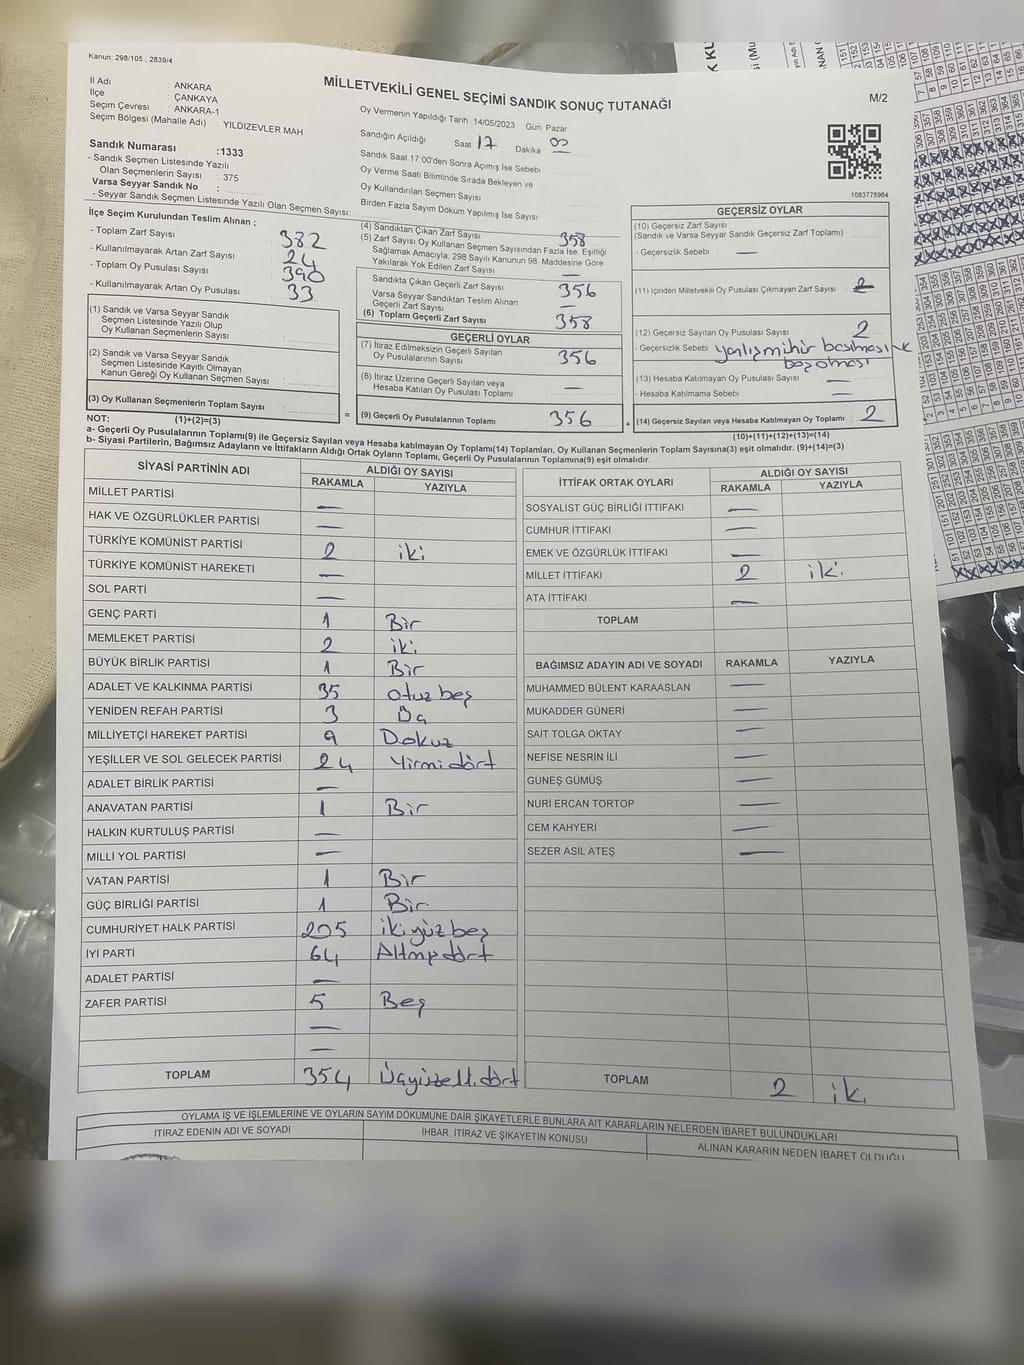 Kanun; 298/105 , 2839/4
MİLLETVEKİLİ GENEL SEÇİMİ SANDIK SONUÇ TUTANAĞI
M/2
İl Adı : ANKARA
İlçe : ÇANKAYA
Seçim Çevresi : ANKARA-1
Seçim Bölgesi (Mahalle Adı) : YILDIZEVLER MAH
Sandık Numarası :1333
- Sandık Seçmen Listesinde Yazılı
Olan Seçmenlerin Sayısı : 375
Varsa Seyyar Sandık No :
- Seyyar Sandık Seçmen Listesinde Yazılı Olan Seçmen Sayısı:
Oy Vermenin Yapıldığı Tarih :14/05/2023 Gün Pazar
Sandığın Açıldığı Saat 17 Dakika 00
Sandık Saat 17.00'den Sonra Açımış İse Sebebi
Oy Verme Saati Bitiminde Sırada Bekleyen ve
Oy Kullandırılan Seçmen Sayısı
Birden Fazla Sayım Döküm Yapılmış İse Sayısı
1083778984
İlçe Seçim Kurulundan Teslim Alınan ;
- Toplam Zarf Sayısı : 382
- Kullanılmayarak Artan Zarf Sayısı : 24
- Toplam Oy Pusulası Sayısı : 390
- Kullanılmayarak Artan Oy Pusulası : 33
(1) Sandık ve Varsa Seyyar Sandık
Seçmen Listesinde Yazılı Olup
Oy Kullanan Seçmenlerin Sayısı :
(2) Sandık ve Varsa Seyyar Sandık
Seçmen Listesinde Kayıtlı Olmayan
Kanun Gereği Oy Kullanan Seçmen Sayısı :
(3) Oy Kullanan Seçmenlerin Toplam Sayısı :
(1)+(2)=(3)
(4) Sandıktan Çıkan Zarf Sayısı 358
(5) Zarf Sayısı Oy Kullanan Seçmen Sayısından Fazla İse, Eşitliği
Sağlamak Amacıyla, 298 Sayılı Kanunun 98. Maddesine Göre
Yakılarak Yok Edilen Zarf Sayısı —
Sandıkta Çıkan Geçerli Zarf Sayısı 356
Varsa Seyyar Sandıktan Teslim Alınan
Geçerli Zarf Sayısı —
(6) Toplam Geçerli Zarf Sayısı 358
GEÇERLİ OYLAR
(7) İtiraz Edilmeksizin Geçerli Sayılan
Oy Pusulalarının Sayısı 356
(8) İtiraz Üzerine Geçerli Sayılan veya
Hesaba Katılan Oy Pusulası Toplamı —
= (9) Geçerli Oy Pusulalarının Toplamı 356
GEÇERSİZ OYLAR
(10) Geçersiz Zarf Sayısı
(Sandık ve Varsa Seyyar Sandık Geçersiz Zarf Toplamı)
- Geçersizlik Sebebi : —
(11) İçinden Milletvekili Oy Pusulası Çıkmayan Zarf Sayısı :
(12) Geçersiz Sayılan Oy Pusulası Sayısı : 2
- Geçersizlik Sebebi : yanlış mühür basılması ve
boş olması
(13) Hesaba Katılmayan Oy Pusulası Sayısı : —
- Hesaba Katılmama Sebebi : —
+ (14) Geçersiz Sayılan veya Hesaba Katılmayan Oy Toplamı : 2
(10)+(11)+(12)+(13)=(14)
NOT:
a- Geçerli Oy Pusulalarının Toplamı(9) ile Geçersiz Sayılan veya Hesaba katılmayan Oy Toplamı(14) Toplamları, Oy Kullanan Seçmenlerin Toplam Sayısına(3) eşit olmalıdır. (9)+(14)=(3)
b- Siyasi Partilerin, Bağımsız Adayların ve İttifakların Aldığı Ortak Oyların Toplamı, Geçerli Oy Pusulalarının Toplamına(9) eşit olmalıdır.
SİYASİ PARTİNİN ADI ALDIĞI OY SAYISI
RAKAMLA YAZIYLA
MİLLET PARTİSİ —
HAK VE ÖZGÜRLÜKLER PARTİSİ —
TÜRKİYE KOMÜNİST PARTİSİ 2 iki
TÜRKİYE KOMÜNİST HAREKETİ —
SOL PARTİ —
GENÇ PARTİ 1 Bir
MEMLEKET PARTİSİ 2 iki
BÜYÜK BİRLİK PARTİSİ 1 Bir
ADALET VE KALKINMA PARTİSİ 35 otuz beş
YENİDEN REFAH PARTİSİ 3 Üç
MİLLİYETÇİ HAREKET PARTİSİ 9 Dokuz
YEŞİLLER VE SOL GELECEK PARTİSİ 24 Yirmi dört
ADALET BİRLİK PARTİSİ —
ANAVATAN PARTİSİ 1 Bir
HALKIN KURTULUŞ PARTİSİ —
MİLLİ YOL PARTİSİ —
VATAN PARTİSİ 1 Bir
GÜÇ BİRLİĞİ PARTİSİ 1 Bir
CUMHURİYET HALK PARTİSİ 205 iki yüz beş
İYİ PARTİ 64 Altmış dört
ADALET PARTİSİ —
ZAFER PARTİSİ 5 Beş
—
—
TOPLAM 354 Üçyüzelli dört
İTTİFAK ORTAK OYLARI ALDIĞI OY SAYISI
RAKAMLA YAZIYLA
SOSYALİST GÜÇ BİRLİĞİ İTTİFAKI —
CUMHUR İTTİFAKI —
EMEK VE ÖZGÜRLÜK İTTİFAKI —
MİLLET İTTİFAKI 2 iki
ATA İTTİFAKI —
TOPLAM
BAĞIMSIZ ADAYIN ADI VE SOYADI RAKAMLA YAZIYLA
MUHAMMED BÜLENT KARAASLAN —
MUKADDER GÜNERİ —
SAİT TOLGA OKTAY —
NEFİSE NESRİN İLİ —
GÜNEŞ GÜMÜŞ —
NURİ ERCAN TORTOP —
CEM KAHYERİ —
SEZER ASİL ATEŞ —
TOPLAM 2 iki
OYLAMA İŞ VE İŞLEMLERİNE VE OYLARIN SAYIM DÖKÜMÜNE DAİR ŞİKAYETLERLE BUNLARA AİT KARARLARIN NELERDEN İBARET BULUNDUKLARI
İTİRAZ EDENİN ADI VE SOYADI İHBAR, İTİRAZ VE ŞİKAYETİN KONUSU ALINAN KARARIN NEDEN İBARET OLDUĞU